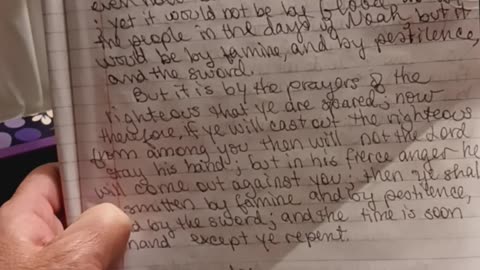 even now
; yet it would not be by flood
the people in the days of Noah but it
would be by famine, and by pestilence,
and the sword.
But it is by the prayers of the
righteous that ye are spared; now
therefore, if ye will cast out the righteous
from among you then will not the Lord
stay his hand; but in his fierce anger he
will come out against you; then ye shal
smitten by famine and by pestilence,
d by the sword; and the time is soon
hand except ye repent.